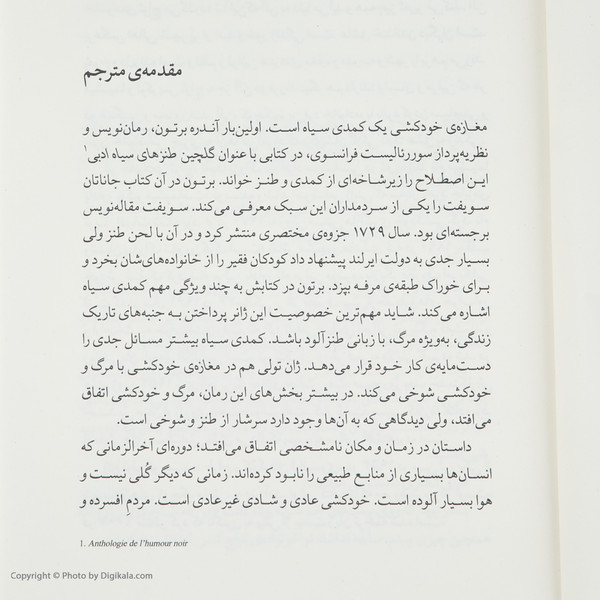 مقدمه‌ی مترجم
مغازه‌ی خودکشی یک کمدی سیاه است. اولین‌بار آندره برتون، رمان‌نویس و
نظریه‌پرداز سوررئالیست فرانسوی، در کتابی با عنوان گلچین طنزهای سیاه ادبی۱
این اصطلاح را زیرشاخه‌ای از کمدی و طنز خواند. برتون در آن کتاب جاناتان
سویفت را یکی از سردمداران این سبک معرفی می‌کند. سویفت مقاله‌نویس
برجسته‌ای بود. سال ۱۷۲۹ جزوه‌ی مختصری منتشر کرد و در آن با لحن طنز ولی
بسیار جدی به دولت ایرلند پیشنهاد داد کودکان فقیر را از خانواده‌های‌شان بخرد و
برای خوراک طبقه‌ی مرفه بپزد. برتون در کتابش به چند ویژگی مهم کمدی سیاه
اشاره می‌کند. شاید مهم‌ترین خصوصیت این ژانر پرداختن به جنبه‌های تاریک
زندگی، به‌ویژه مرگ، با زبانی طنزآلود باشد. کمدی سیاه بیشتر مسائل جدی را
دست‌مایه‌ی کار خود قرار می‌دهد. ژان تولی هم در مغازه‌ی خودکشی با مرگ و
خودکشی شوخی می‌کند. در بیشتر بخش‌های این رمان، مرگ و خودکشی اتفاق
می‌افتد، ولی دیدگاهی که به آن‌ها وجود دارد سرشار از طنز و شوخی است.
داستان در زمان و مکان نامشخصی اتفاق می‌افتد؛ دوره‌ای آخرالزمانی که
انسان‌ها بسیاری از منابع طبیعی را نابود کرده‌اند. زمانی که دیگر گُلی نیست و
هوا بسیار آلوده است. خودکشی عادی و شادی غیرعادی است. مردمِ افسرده و
1. Anthologie de l'humour noir
Copyright © Photo by Digikala.com